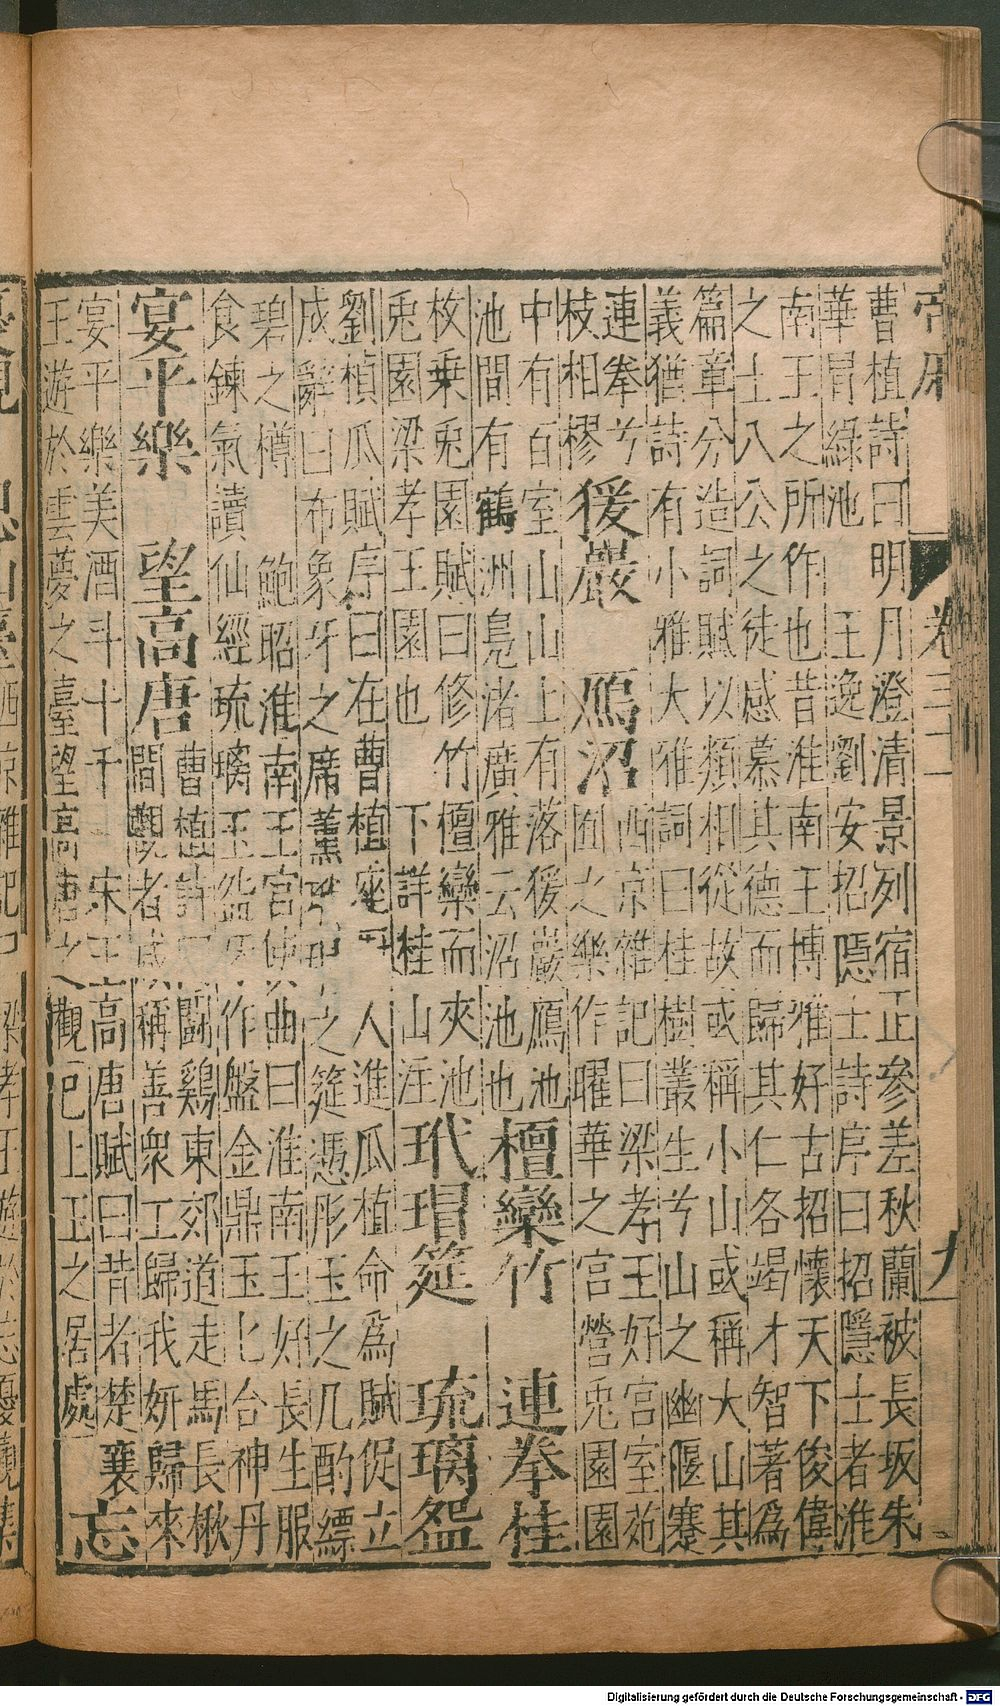 帝屬
卷三十一
九
曹植詩曰明月澄清景列宿正參差秋蘭被長坂朱
華冒綠池　王逸劉安招隱士詩序曰招隱士者淮
南王之所作也昔淮南王博雅好古招懷天下俊偉
之士八公之徒咸慕其德而歸其仁各竭才智著為
篇章分造詞賦以類相從故或稱小山或稱大山其
義猶詩有小雅大雅詞曰桂樹叢生兮山之幽偃蹇
連拳兮
枝相樛
猨巖　鴈沼
西京雜記曰梁孝王好宮室苑
囿之樂作曜華之宮營兔園園
中有百室山山上有落猨巖鴈池
池間有鶴洲鳧渚廣雅云沼池也
檀欒竹　連拳桂
枚乗兎園賦曰修竹檀欒而夾池
兎園梁孝王園也　下詳桂山注
玳瑁筵　琉璃盌
劉楨瓜賦序曰在曹植座　人進瓜植命為賦促立
成辭曰布象牙之席薰玳瑁之筵憑彤玉之几酌縹
碧之樽　鮑昭淮南王宮使曲曰淮南王好長生服
食鍊氣讀仙經琉璃玉盌牙作盤金鼎玉匕台神丹
宴平樂　望高唐
曹植詩曰鬪鷄東郊道走馬長楸
間觀者咸稱善衆工歸我妍歸來
宴平樂美酒斗十千　宋玉高唐賦曰昔者楚襄
王遊於雲夢之臺望高唐之觀　已上王之居處
忘
Digitalisierung gefördert durch die Deutsche Forschungsgemeinschaft - DFG